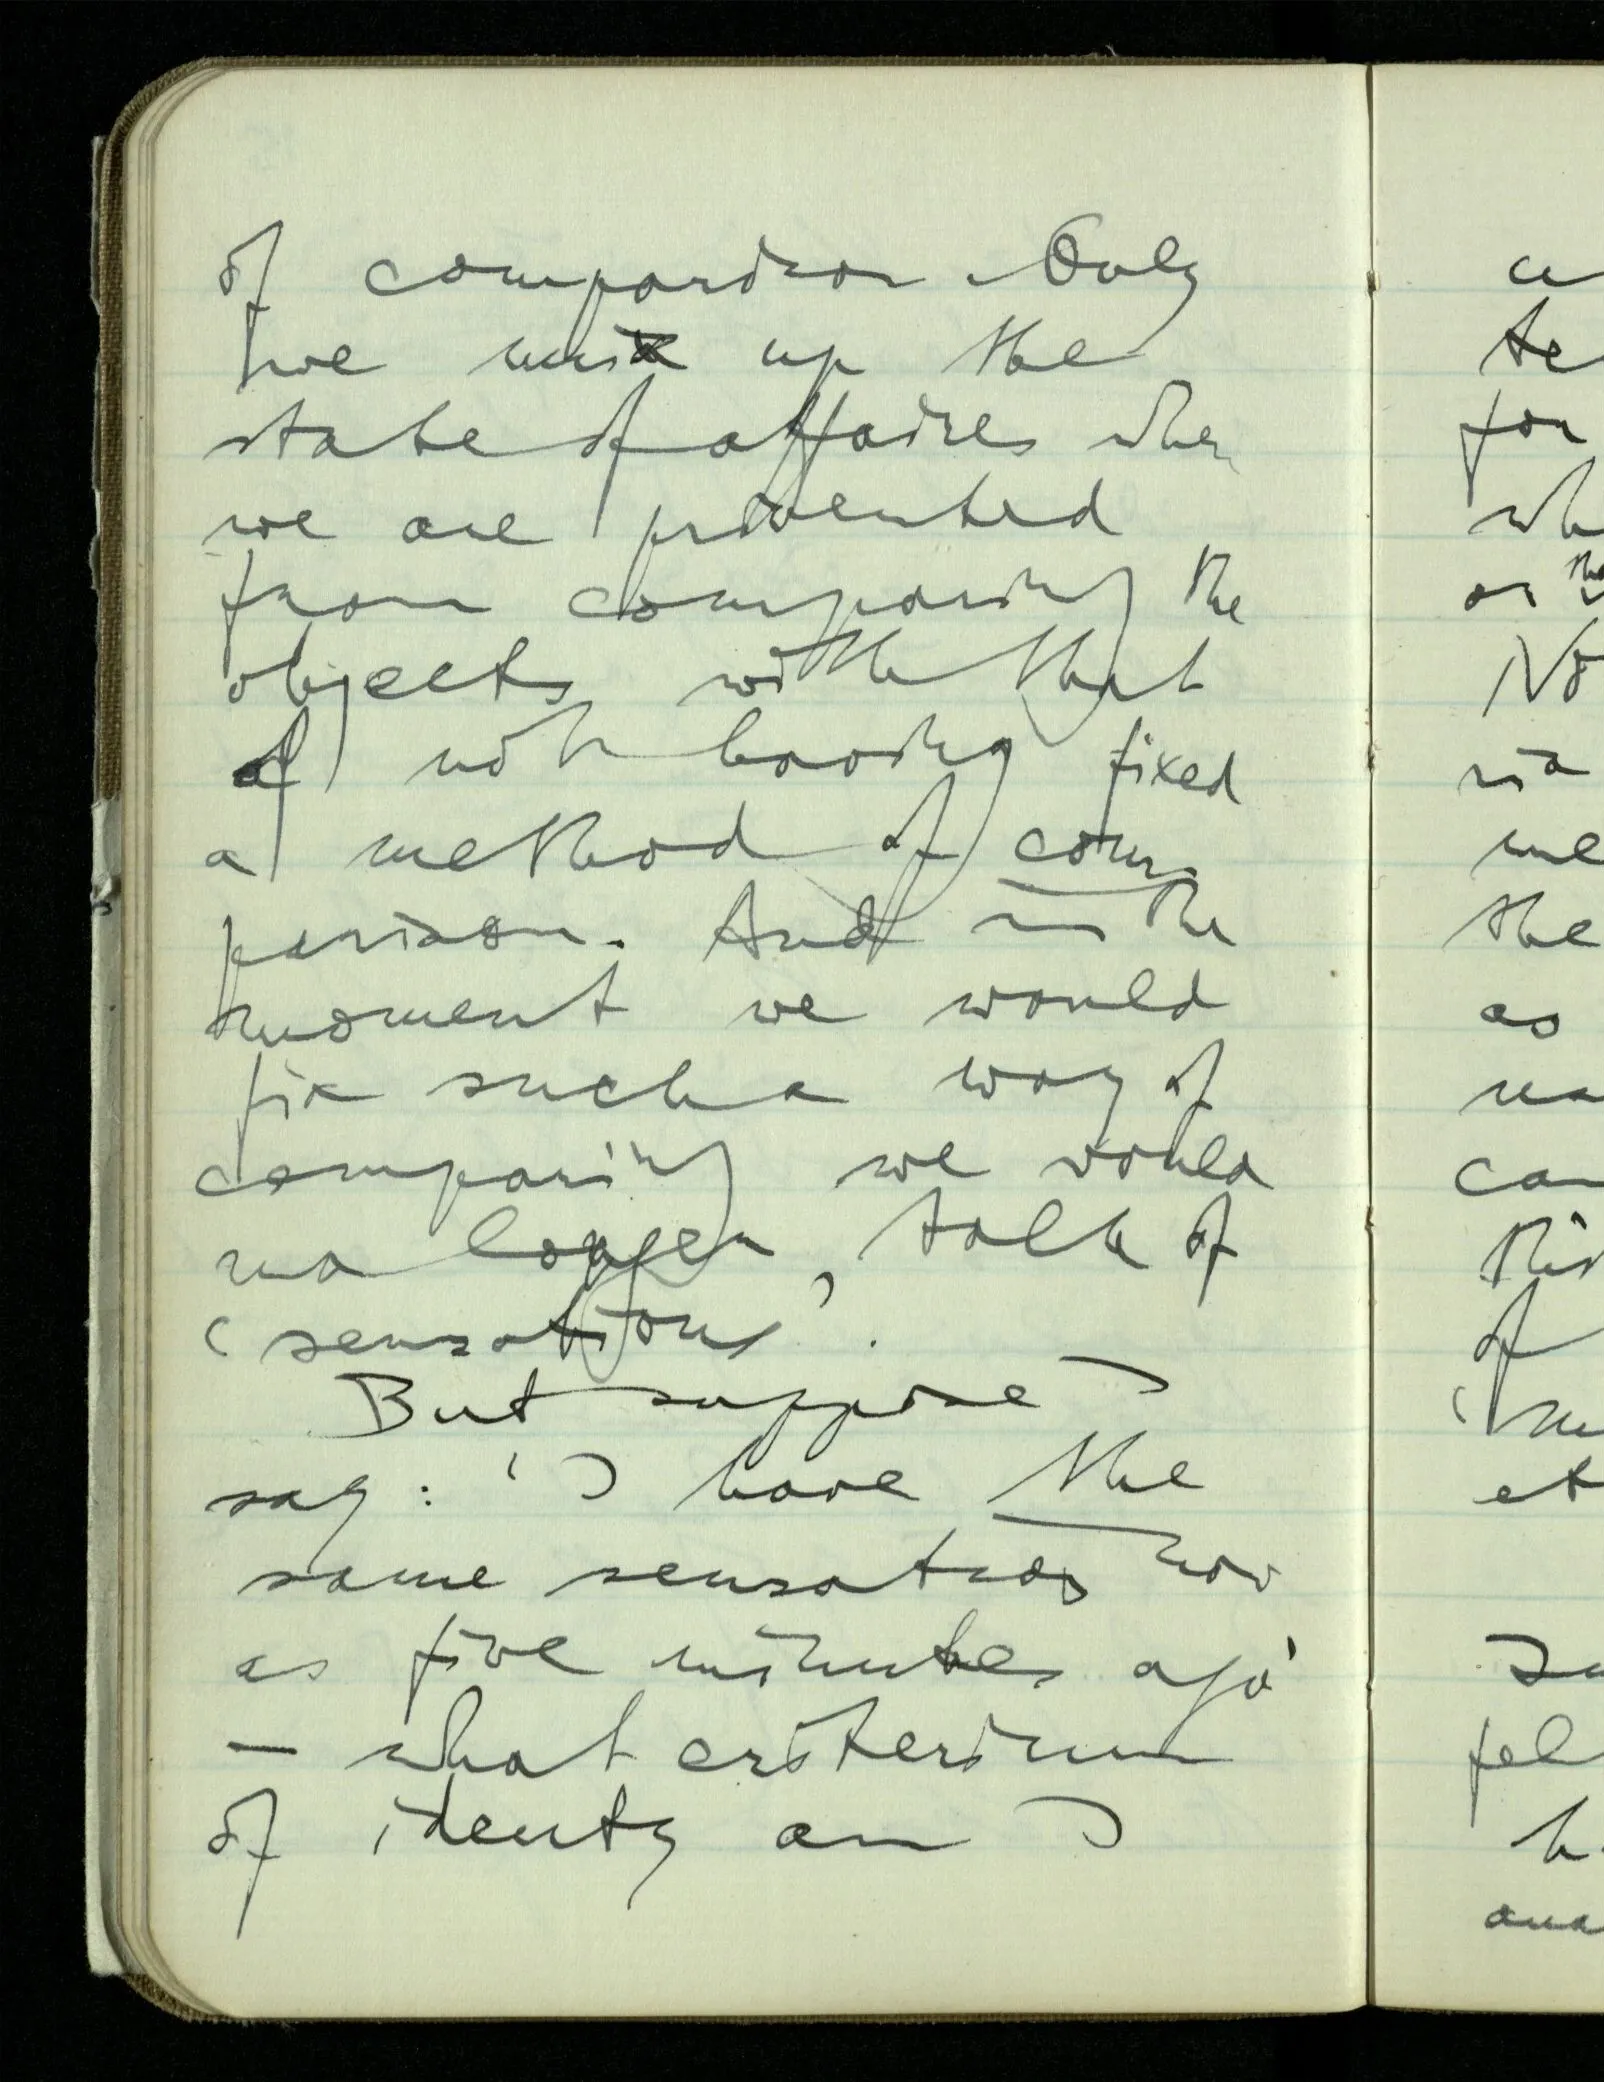 of comparison. Only
we mix up the
state of affaires when
we are prevented
from comparing the
objects with that
of not having fixed
a method of com-
parison. And in the
moment we would
fix such a way of
comparing we would
no longer talk of
'sensations'.
But suppose I
say: 'I have the
same sensation now
as five minutes ago'
– what criterium
of identy am I